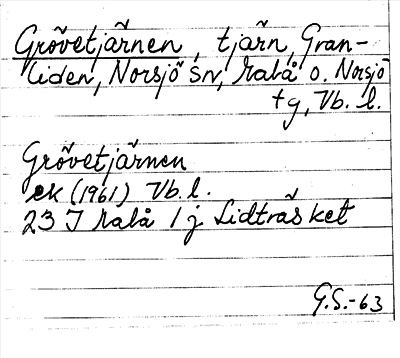 Grövetjärnen, tjärn, Gran-
liden, Norsjö sn, Malå o. Norsjö
tg, Vb. l.
Grövetjärnen
ek (1961) Vb. l.
23 J Malå 1 j Lidträsket
G.S.-63